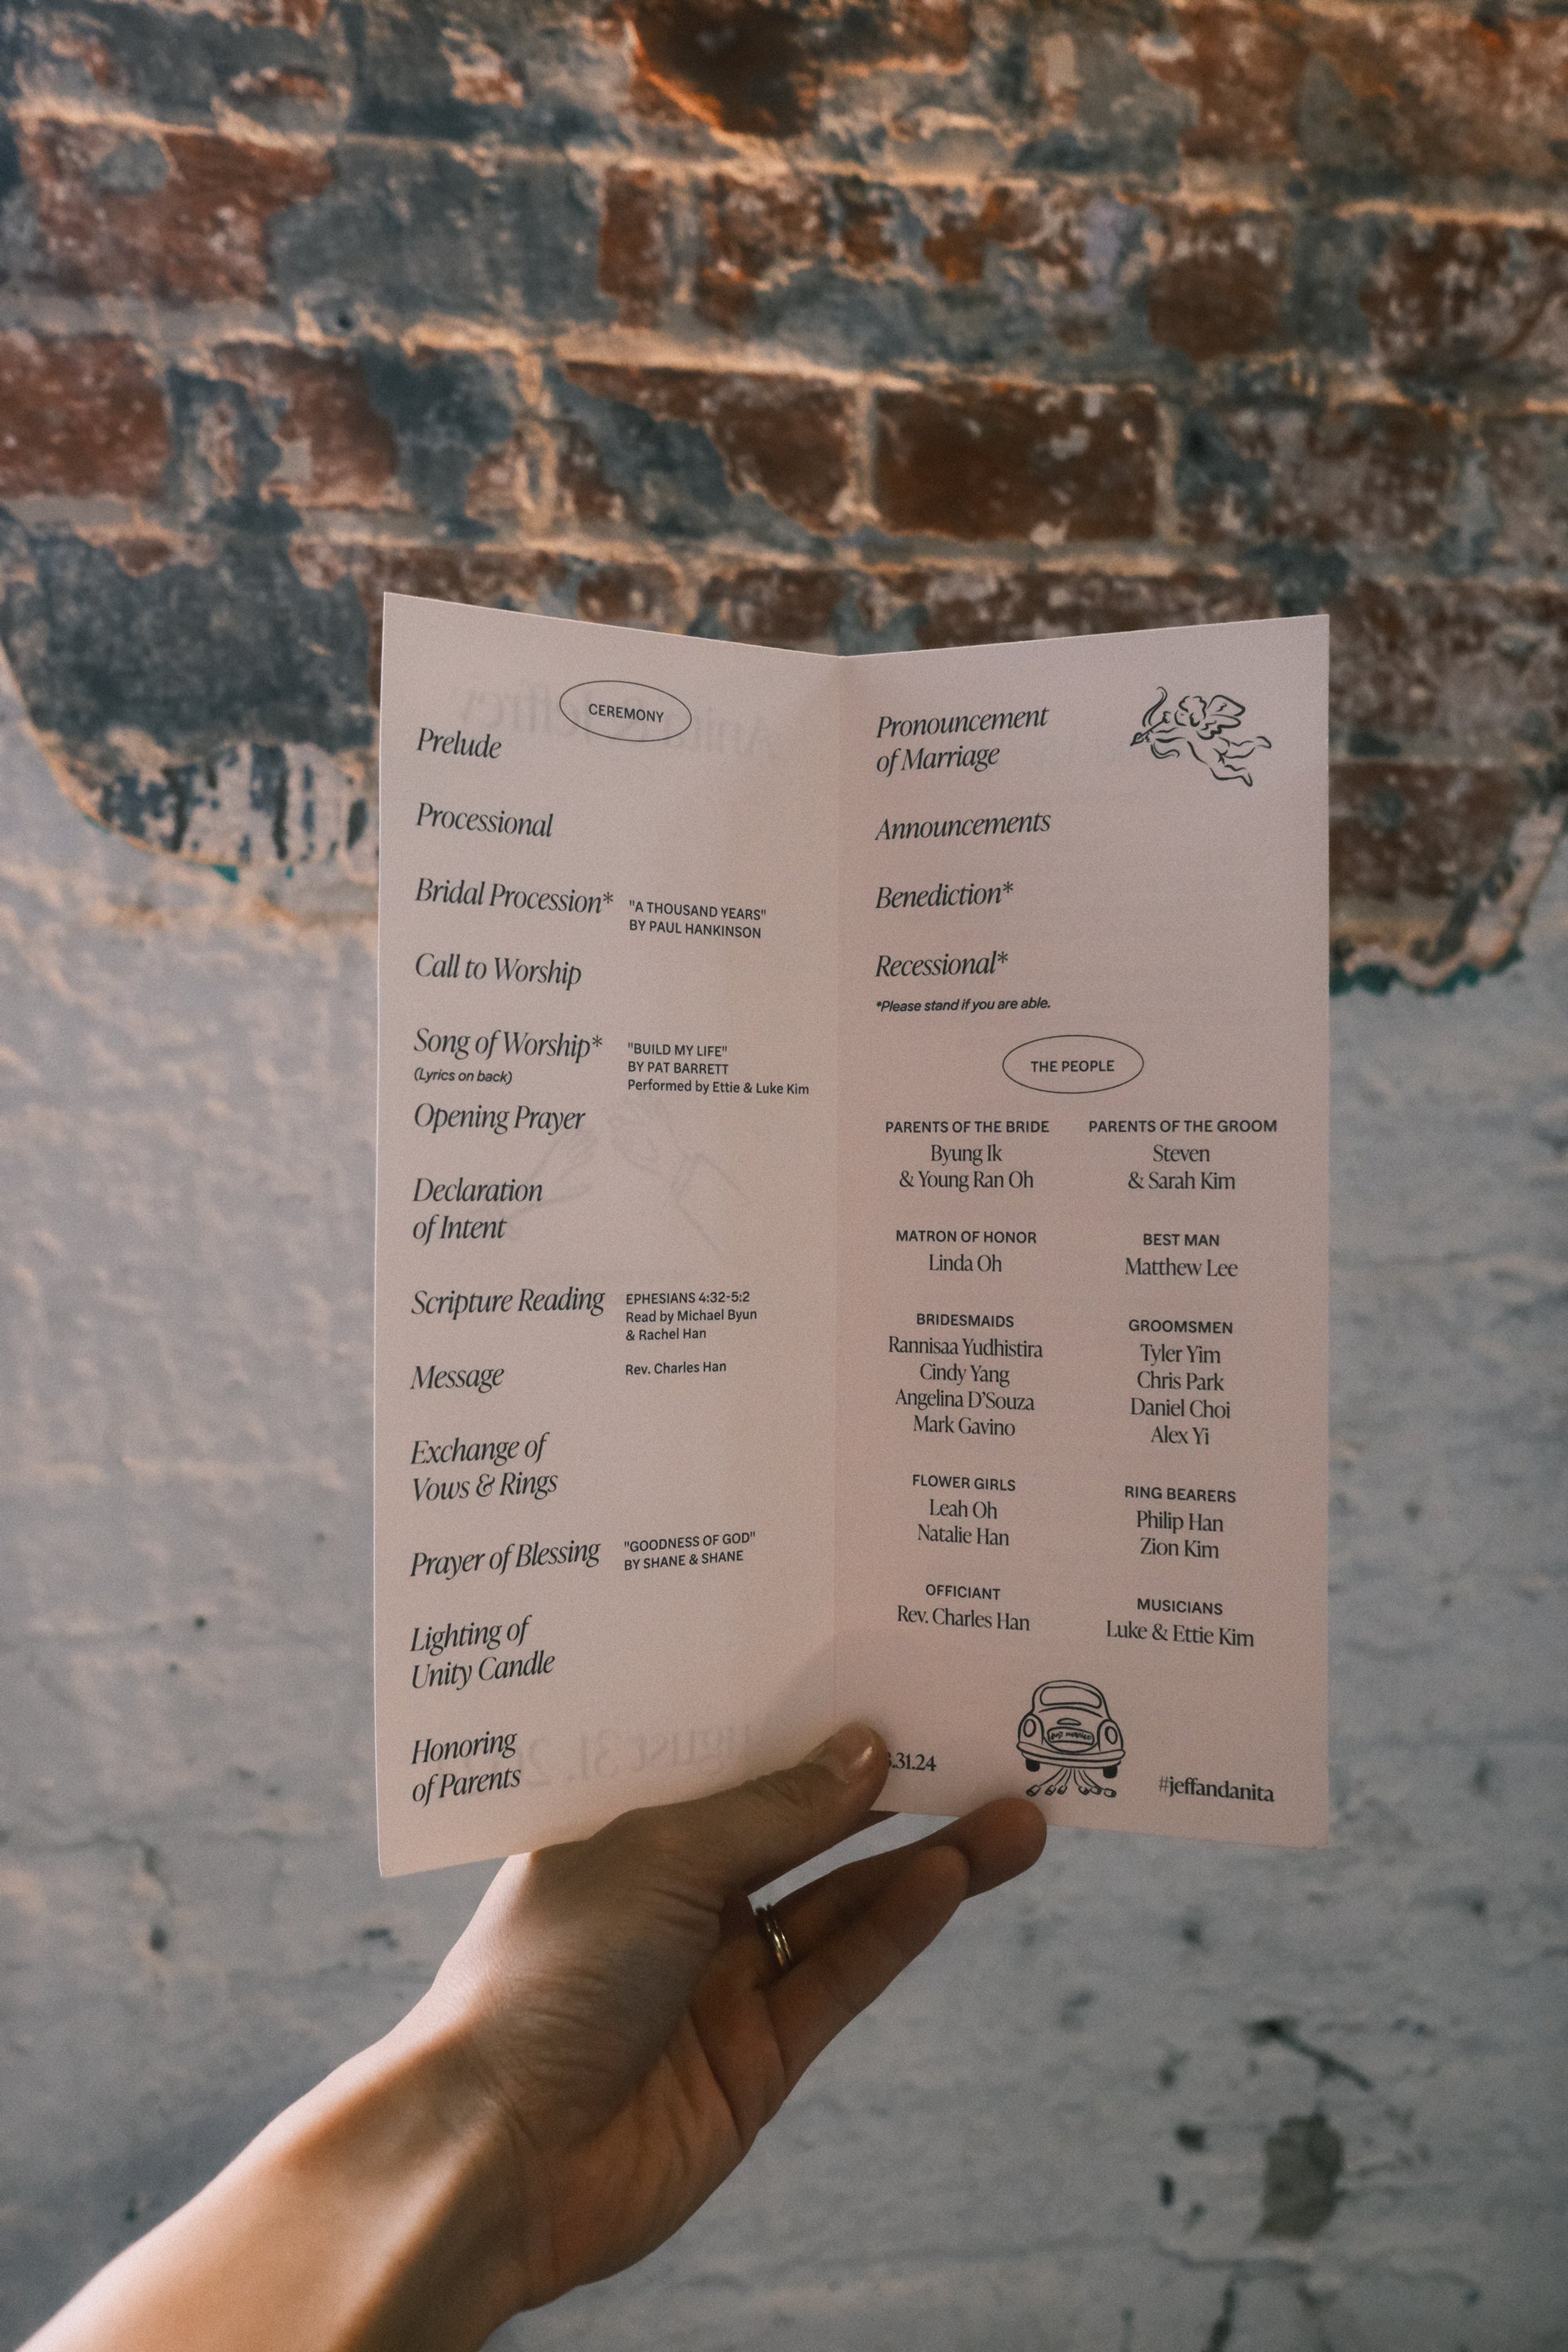 CEREMONY
Prelude
Processional
Bridal Procession*
"A THOUSAND YEARS"
BY PAUL HANKINSON
Call to Worship
Song of Worship*
(Lyrics on back)
"BUILD MY LIFE"
BY PAT BARRETT
Performed by Ettie & Luke Kim
Opening Prayer
Declaration
of Intent
Scripture Reading
EPHESIANS 4:32-5:2
Read by Michael Byun
& Rachel Han
Message
Rev. Charles Han
Exchange of
Vows & Rings
Prayer of Blessing
"GOODNESS OF GOD"
BY SHANE & SHANE
Lighting of
Unity Candle
Honoring
of Parents
Pronouncement
of Marriage
Announcements
Benediction*
Recessional*
*Please stand if you are able.
THE PEOPLE
PARENTS OF THE BRIDE
Byung Ik
& Young Ran Oh
PARENTS OF THE GROOM
Steven
& Sarah Kim
MATRON OF HONOR
Linda Oh
BEST MAN
Matthew Lee
BRIDESMAIDS
Rannisaa Yudhistira
Cindy Yang
Angelina D'Souza
Mark Gavino
GROOMSMEN
Tyler Yim
Chris Park
Daniel Choi
Alex Yi
FLOWER GIRLS
Leah Oh
Natalie Han
RING BEARERS
Philip Han
Zion Kim
OFFICIANT
Rev. Charles Han
MUSICIANS
Luke & Ettie Kim
.31.24
just married
#jeffandanita